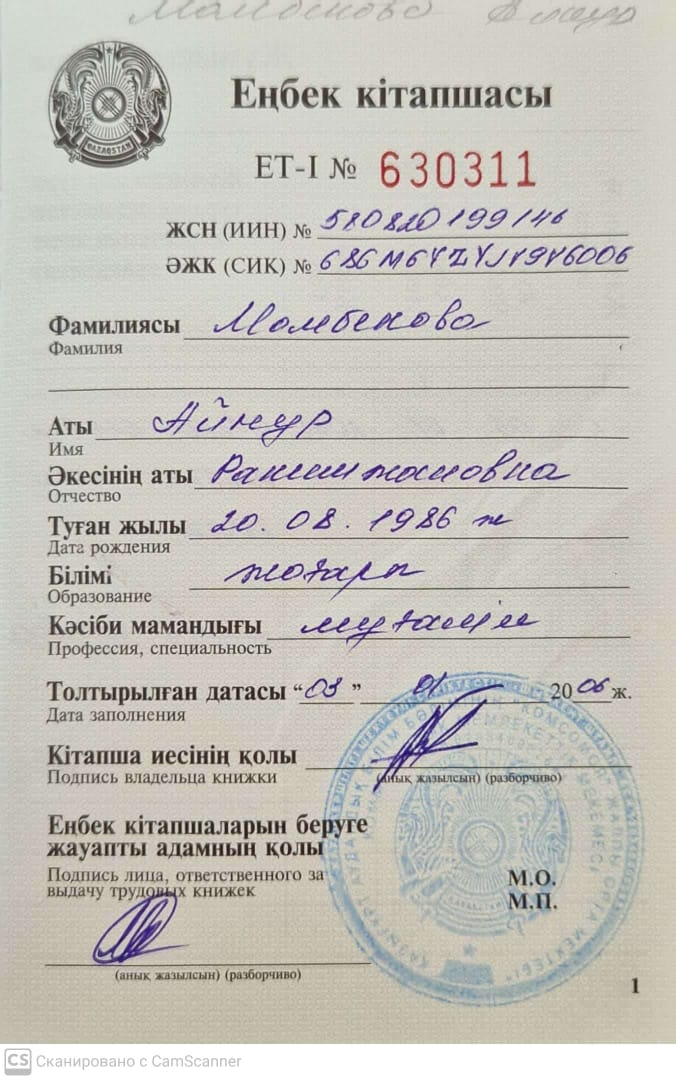 Мамбекова
Еңбек кітапшасы
ҚАZАQSTAN
ЕТ-I № 630311
ЖСН (ИИН) № 580820199146
ӘЖК (СИК) №
Фамилиясы Мамбекова
Фамилия
Аты Айнур
Имя
Әкесінің аты
Отчество
Туған жылы 20. 08. 1986 ж
Дата рождения
Білімі жоғары
Образование
Кәсіби мамандығы мұғалім
Профессия, специальность
Толтырылған датасы “03” 01 2006 ж.
Дата заполнения
Кітапша иесінің қолы
Подпись владельца книжки
(анық жазылсын) (разборчиво)
Еңбек кітапшаларын беруге
жауапты адамның қолы
Подпись лица, ответственного за
выдачу трудовых книжек
М.О.
М.П.
(анық жазылсын) (разборчиво)
1
CS Сканировано с CamScanner